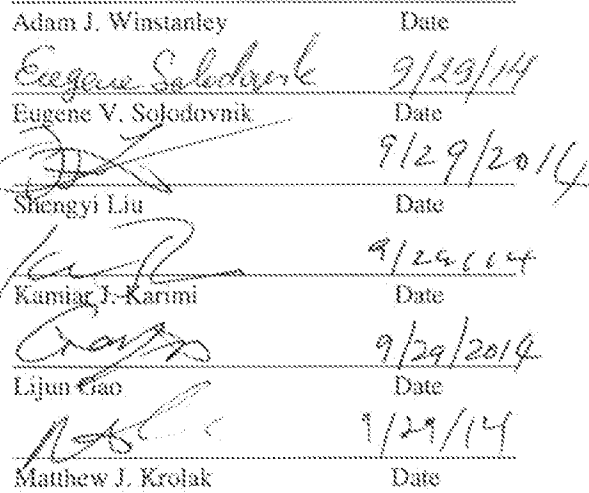 Adam J. Winstanley Date
Eugene Solodovnik 9/29/14
Eugene V. Solodovnik Date
9/29/2014
Shengyi Liu Date
9/29/14
Kamiar J. Karimi Date
9/29/2014
Lijun Gao Date
9/29/14
Matthew J. Krolak Date